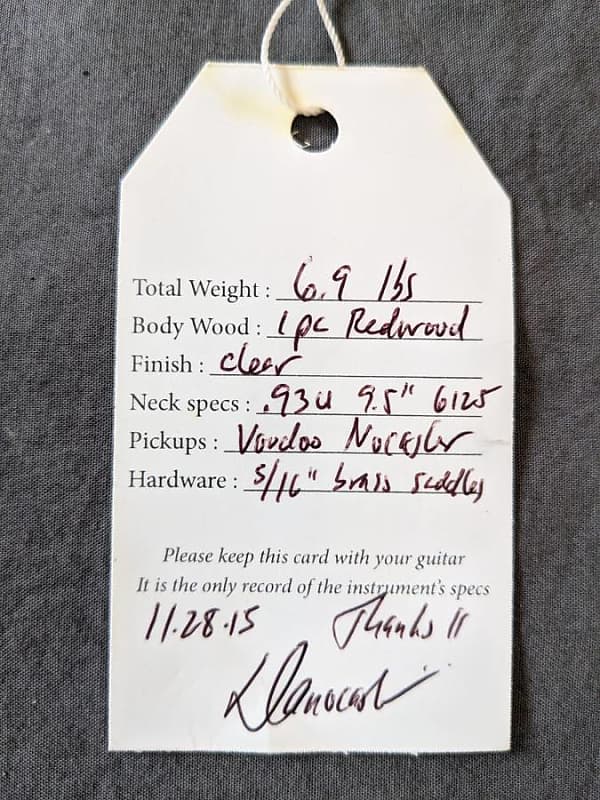 Total Weight : 6.9 lbs
Body Wood : 1 pc Redwood
Finish : clear
Neck specs : .93U 9.5" 6125
Pickups : Voodoo Nocaster
Hardware : 5/16" brass saddles
Please keep this card with your guitar
It is the only record of the instrument's specs
11.28.15 Thanks !!